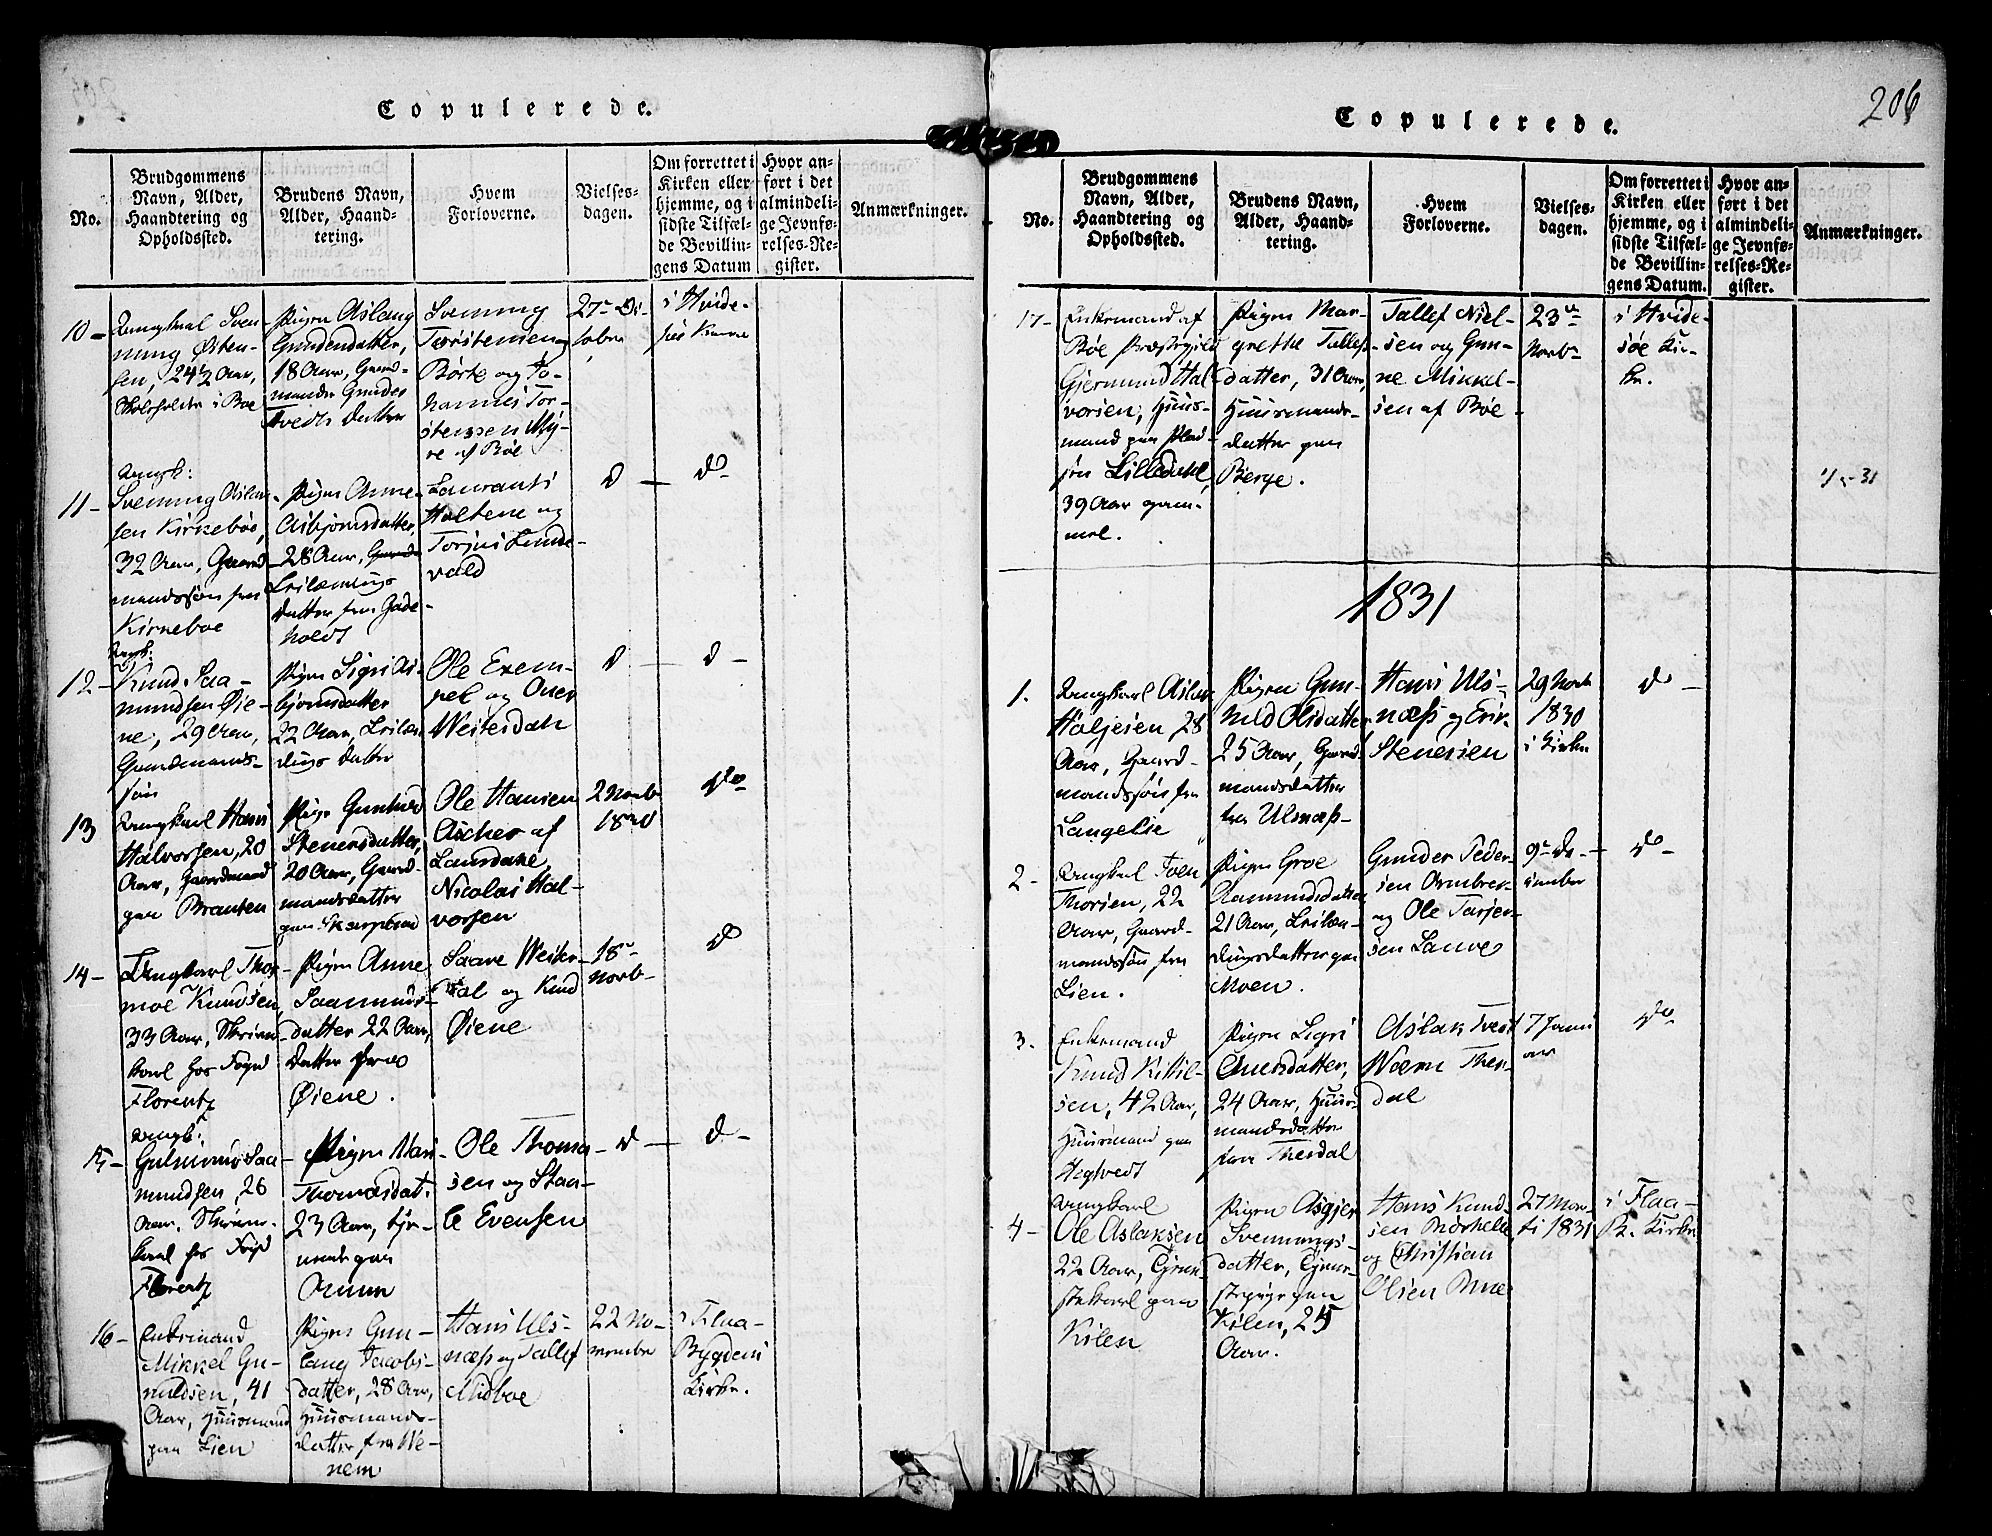 Copulerede.
No.
Brudgommens
Navn, Alder,
Haandtering og
Opholdssted.
Brudens Navn,
Alder, Haand-
tering.
Hvem
Forloverne.
Vielses-
dagen.
Om forrettet i
Kirken eller
hjemme, og i
sidste Tilfæl-
de Bevillin-
gens Datum
Hvor an-
ført i det
almindeli-
ge Jevnfø-
relses-Re-
gister.
Anmærkninger.
10 -
Ungkarl Sven-
ning Østen-
sen, 24 1/2 Aar,
i Boe
Pigen Aslaug
Gundersdatter,
18 Aar, Gaard-
mands Gunder
Tvedts Datter
Svenning
Torstensen
Børte og Jo-
hannes Tor-
stenssen My-
re af Bøe
27de Oc-
tober
i Hvide-
søe Kirke
11 -
Ungk:
Svenning Aslak-
sen Kirkebøe,
32 Aar, Gaard-
mandssøn fra
Kirkeboe
Pigen Anne
Asbjørnsdatter,
28 Aar,
Leilændings
Datter fra
holdt
Laurants
Holtene og
Torjus Lunde-
vald
d -
do
12 -
Ungk:
Knud Saa-
mundsen Øie-
ne, 29 Aar,
Gaardmands-
søn
Pigen Sigri As-
bjørnsdatter
22 Aar, Leilæn-
dings Datter
Ole Exem-
pel og Aver
Westerdal
d -
d -
13
Ungkarl Hans
Halvorsen, 20
Aar, Gaardmand
paa Brauten
Pige Gunhild
Stenersdatter,
20 Aar, Gaard-
mandsdatter
paa
Ole Hansen
Ascher af
Laurdahl,
Nicolai Hal-
vorsen
2 Novb
1830
do
14 -
Ungkarl Thor-
moe Knudsen,
33 Aar, Skriver-
karl hos Foged
Florentz
Pigen Anne
Saamunds-
datter 22 Aar,
Datter fra
Øiene.
Saave Wester-
dal og Knud
Øiene
18de
Novb-
do
15 -
Ungk:
Gulmund Saa-
mundsen, 26
Aar, Skriver-
karl hos Foged
Florentz
Pigen Mari
Thomasdat:
23 Aar, tje-
nende paa
Ole Thoma-
sen og Staa-
le Evensen
d -
d -
16 -
Enkemand
Mikkel Gu-
nuldsen, 41
Aar, Huusmand
paa Lien
Pigen Gun-
laug Jacobs-
datter, 28 Aar,
Huusmands-
datter fra We-
nem
Hans Uls-
næss og Tallef
Midboe
22 No-
vember
i Flaa-
Bygdens
Kirke.
Copulerede.
206
No.
Brudgommens
Navn, Alder,
Haandtering og
Opholdssted.
Brudens Navn,
Alder, Haand-
tering.
Hvem
Forloverne.
Vielses-
dagen.
Om forrettet i
Kirken eller
hjemme, og i
sidste Tilfæl-
de Bevillin-
gens Datum.
Hvor an-
ført i det
almindeli-
ge Jevnfø-
relses-Re-
gister.
Anmærkninger.
17 -
Enkemand af
Bøe Præstegjeld
Gjermund Hal-
vorsen, Huus-
mand paa Plad-
sen Lilledahl,
39 Aar gam-
mel.
Pigen Mar-
grethe Tallefs-
datter, 31 Aar,
Huusmands-
datter paa
Berge.
Tallef Niel-
sen og Gun-
ne Mikkel-
sen af Bøe -
23de
Novbr
i Hvide-
søe Kir-
ke.
31
1831
1.
Ungkarl Aslak
Høljesen 28
Aar, Gaard-
mandssøn fra
Langelie
Pigen Gun-
hild Olsdatter
25 Aar, Gaard-
mandsdatter
fra Ulsnæss-
Hans Uls-
næss og Erik
Stenersen
29 Novb
1830
i Kirke
do -
2 -
Ungkarl Joen
Thorsen, 22
Aar, Gaard-
mandssøn fra
Lien.
Pigen Groe
Aamundsdatter
21 Aar, Leilæn-
dingsdatter paa
Moen.
Gunder Peder-
sen
og Ole Tarjer-
sen Lauve
9de De-
cember
do -
3.
Enkemand
Knud Kittil-
sen, 42 Aar,
Huusmand paa
Hegtvedt
Pigen Sigri
Aversdatter,
24 Aar, Huus-
mandsdatter
fra Thesdal
Aslak Tveit
Thes-
dal
7 Janu
ar
do
4 -
Ungkarl
Ole Aslaksen
22 Aar, Tjene-
stekarl paa
Kilen
Pigen Asgjer
Svennings-
datter, Tjene-
stepige paa
Kilen, 25
Aar.
Hans Knud-
sen
og Christian
Olsen
27 Mar-
ti 1831
i Flaa-
B. Kirke